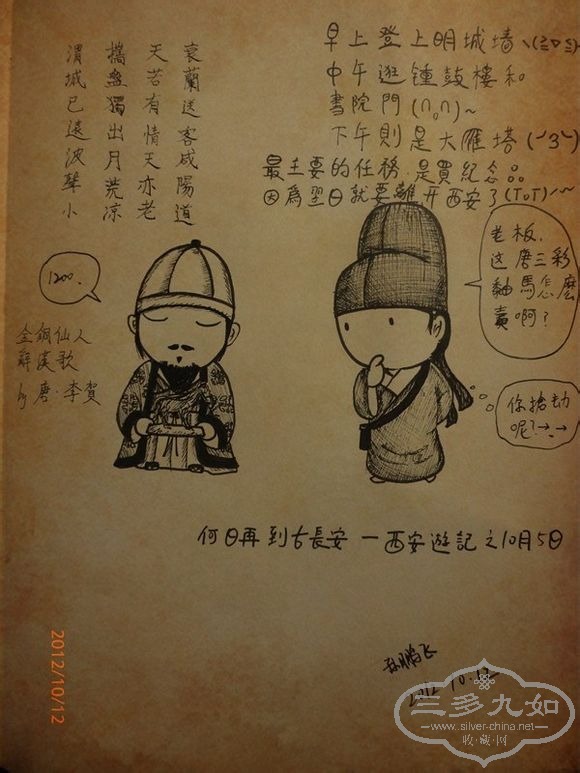 衰蘭送客咸陽道
天若有情天亦老
攜盤獨出月荒凉
渭城已遠波聲小
早上登上明城墙\(≧▽≦)
中午逛鍾鼓樓和
書院門(∩。∩)~
下午則是大雁塔(ˊ3ˋ)
最主要的任務是買紀念品
因為翌日就要離开西安了(ToT)/~~
老板，
这唐三彩
釉馬怎麼
賣啊？
1200.
金銅仙人
辭漢歌
by 唐·李賀
你搶劫
呢？→→
何日再到古長安 — 西安遊記之10月5日
2012/10/12
鹏飞
2012 10.12
三多九如
www.silver-china.net
收·藏·网